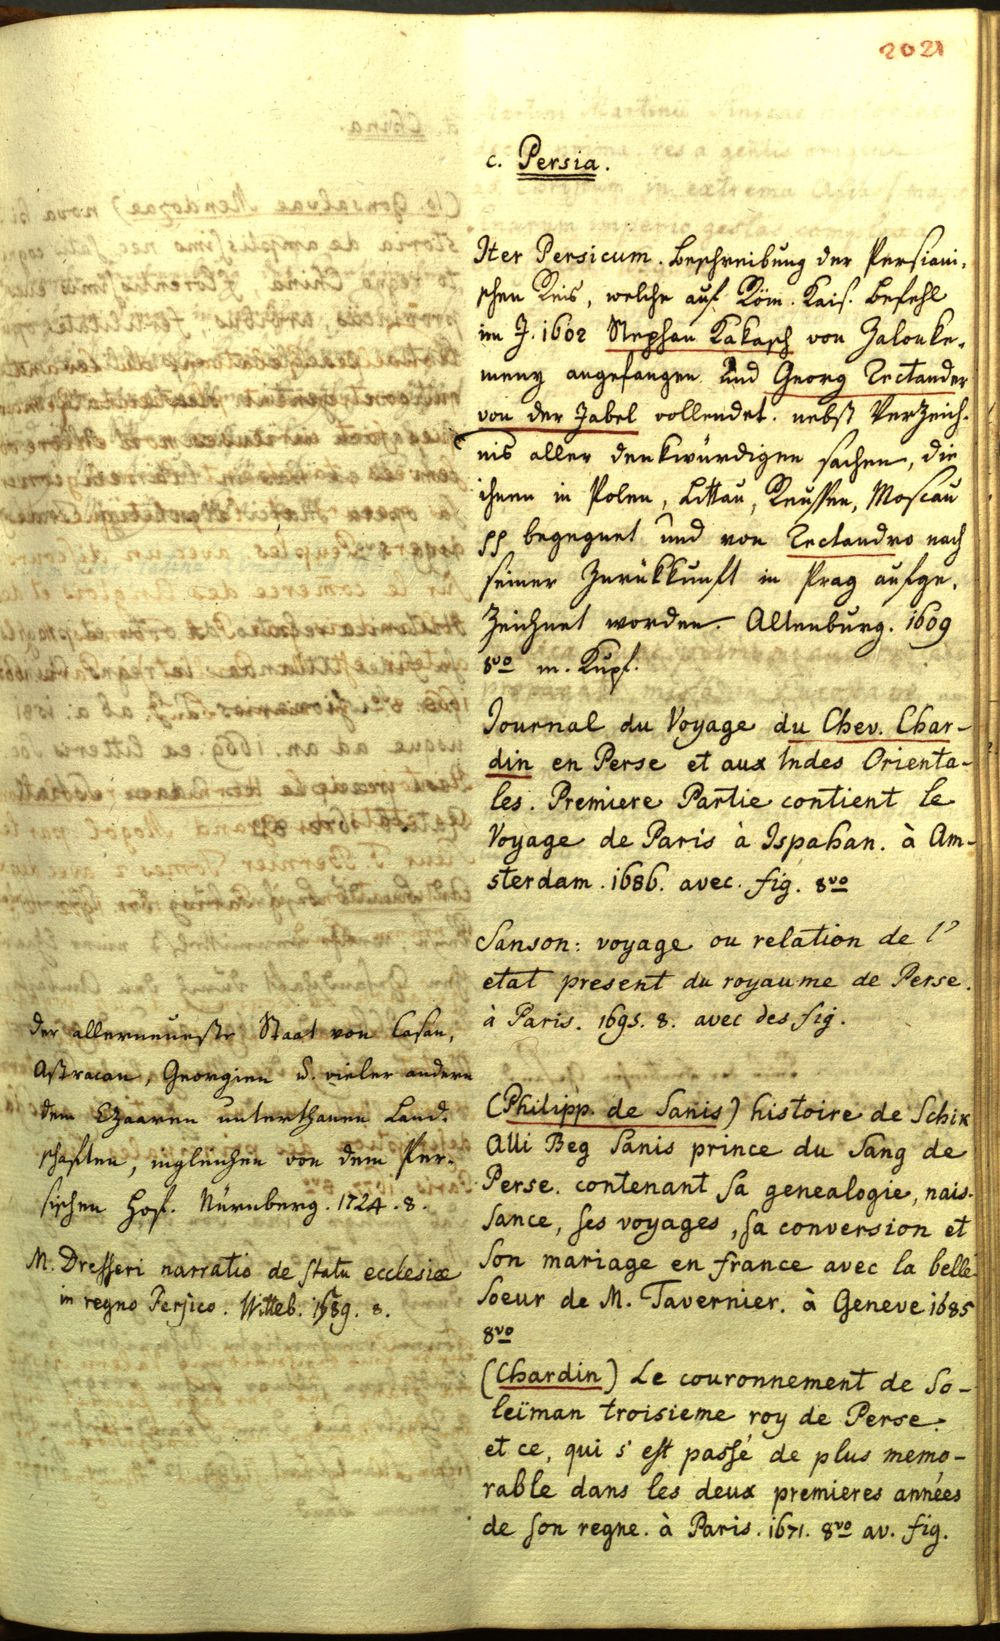 2021
c. Persia.
Iter Persicum. Beschreibung der Persiani-
schen Reis, welche auf Röm. Kais. Befehl
im J. 1602 Stephan Kakasch von Zalonke-
meny angefangen und Georg Tectander
von der Jabel vollendet. nebst Verzeich-
nis aller denkwürdigen sachen, die
ihnen in Polen, Littau, Reussen, Moscau
pp begegnet und von Tectandro nach
seiner Zurükkunft in Prag aufge-
zeichnet worden. Altenburg. 1609
8vo m. Kupf.
Journal du Voyage du Chev. Char-
din en Perse et aux Indes Orienta-
les. Premiere Partie contient le
Voyage de Paris à Ispahan. à Am-
sterdam. 1686. avec. fig. 8vo
Sanson: voyage ou relation de l'
etat present du royaume de Perse.
à Paris. 1695. 8. avec des fig.
(Philipp. de Sanis) histoire de Schix
Alli Beg Sanis prince du Sang de
Perse. contenant sa genealogie, nais-
sance, ses voyages, sa conversion et
son mariage en france avec la belle
soeur de M. Tavernier. à Geneve 1685
8vo
(Chardin) Le couronnement de So-
leïman troisieme roy de Perse.
et ce, qui s'est passé de plus memo-
rable dans les deux premieres années
de son regne. à Paris. 1671. 8vo av. fig.
der allerneueste Staat von Casan,
Astracan, Georgien u. vieler andern
dem Czaaren unterthanen Land-
schaften, ingleichen von dem Per-
sischen Hof. Nürnberg. 1724. 8.
M. Dresseri narratio de statu ecclesiæ
in regno Persico. Witteb. 1589. 8.